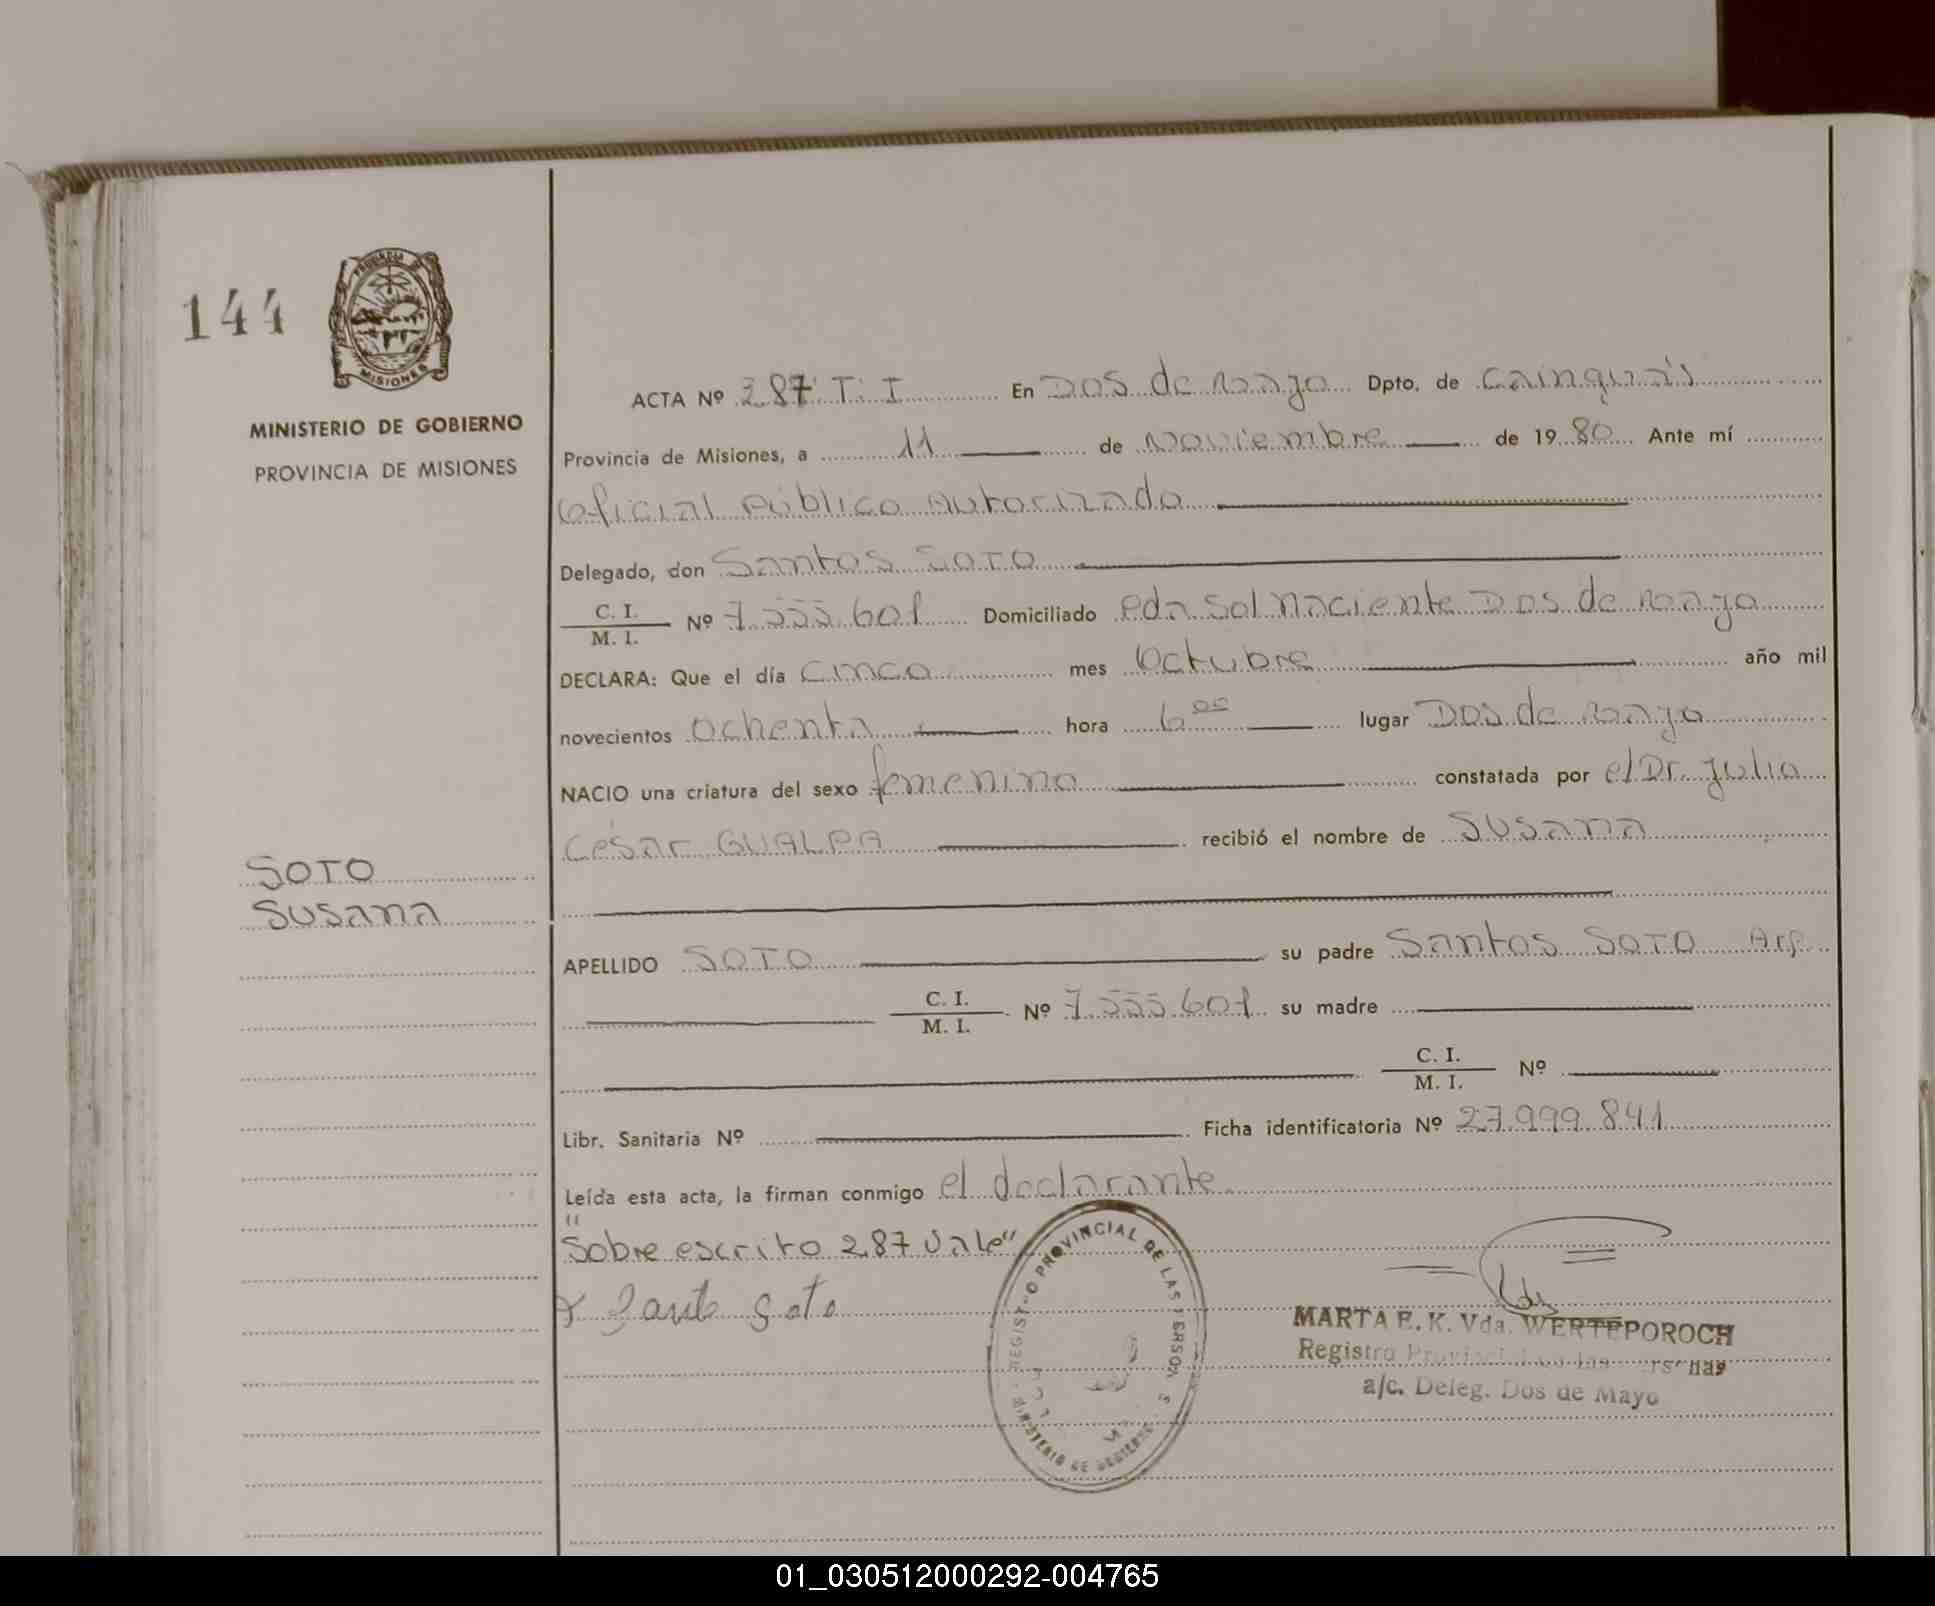 144
PROVINCIA DE
MISIONES
MINISTERIO DE GOBIERNO
PROVINCIA DE MISIONES
ACTA Nº 287 T. I En Dos de mayo Dpto. de Cainguás
Provincia de Misiones, a 11 de Noviembre de 1980 Ante mí
Oficial Público Autorizado
Delegado, don Santos SOTO
C. I.
M. I. Nº 7.555.601 Domiciliado Pda Sol Naciente Dos de mayo
DECLARA: Que el día cinco mes Octubre año mil
novecientos ochenta hora 6 00 lugar Dos de mayo
NACIO una criatura del sexo femenino constatada por el Dr. Julio
César GUALPA recibió el nombre de Susana
SOTO
Susana
APELLIDO SOTO su padre Santos SOTO Arg.
C. I.
M. I. Nº 7.555.601 su madre
C. I.
M. I. Nº
Libr. Sanitaria Nº Ficha identificatoria Nº 27.999.841
Leída esta acta, la firman conmigo el declarante
"Sobre escrito 287 Vale"
Soto
REGISTRO PROVINCIAL DE LAS PERSONAS
MINISTERIO DE GOBIERNO
MARTA E. K. Vda. WERTEPOROCH
Registro Provincial de las Personas
a/c. Deleg. Dos de Mayo
01_030512000292-004765